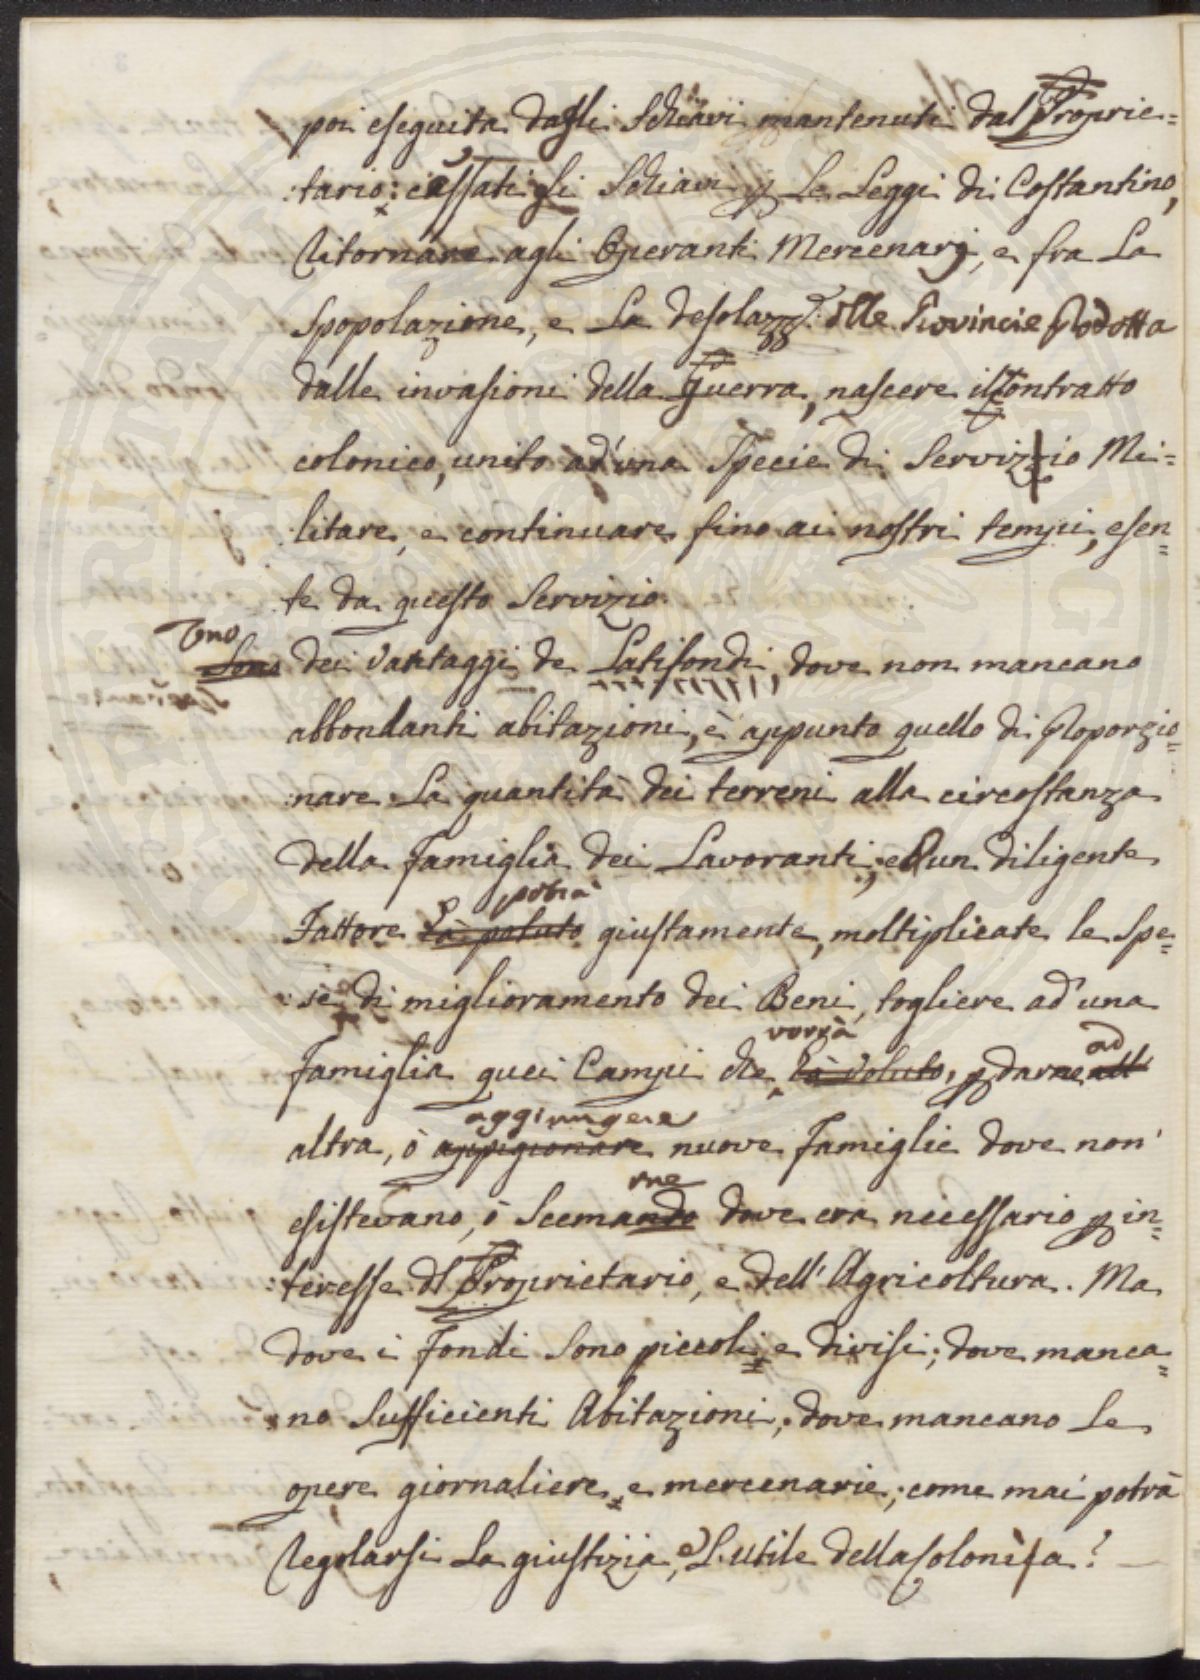 poi eseguita dagli Schiavi mantenuti dal Proprie=
:tario; cessati gli Schiavi p le Leggi di Costantino,
ritornare agli Operanti Mercenarj, e fra la
Spopolazione, e la desolazz.e dlle Provincie prodotta
dalle invasioni della guerra, nascere il Contratto
colonico, unito ad'una Specie di Servizio Mi=
litare, e continuare fino ai nostri tempi, esen=
te da questo Servizio.
Uno
Sono dei vantaggi de Latifondi, dove non mancano
abbondanti abitazioni, è appunto quello di proporzio=
:nare la quantità dei terreni alla circostanza
della famiglia dei Lavoranti; e un diligente
potrà
Fattore hà potuto giustamente, moltiplicate le Spe=
:se di miglioramento dei Beni, togliere ad'una
vorrà ad
famiglia quei Campi che hà voluto, p darne all'
aggiungere
altra, ò appigionare nuove famiglie dove non
me
esistevano, ò Scemando dove era necessario p in=
:teresse dl Proprietario, e dell'Agricoltura. Ma
dove i fondi Sono piccoli e divisi; dove manca=
no Sufficienti Abitazioni; dove mancano Le
opere giornaliere e mercenarie; come mai potrà
regolarsi la giustizia, e L'utile della Colonìa?